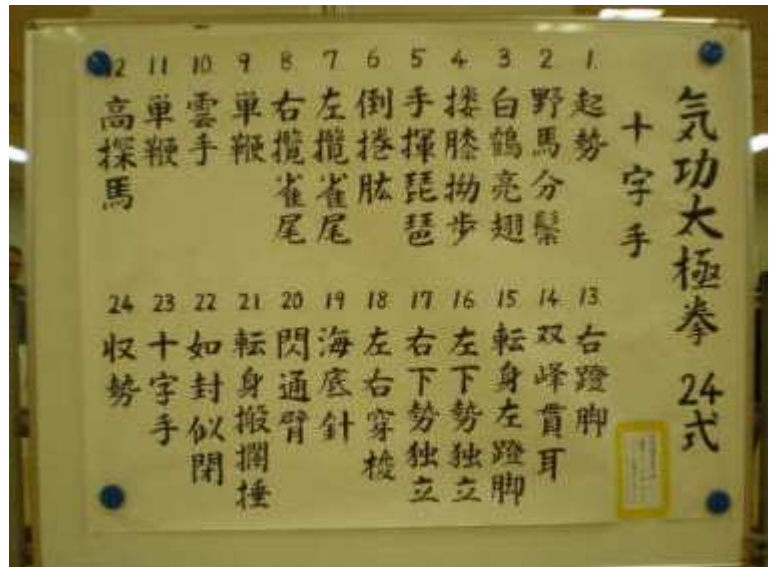 気功太極拳 24式
十字手
1. 起勢
2 野馬分鬃
3 白鶴亮翅
4 搂膝拗歩
5 手揮琵琶
6 倒捲肱
7 左攬雀尾
8 右攬雀尾
9 単鞭
10 雲手
11 単鞭
12 高探馬
13. 右蹬脚
14 双峰貫耳
15 転身左蹬脚
16 左下勢独立
17 右下勢独立
18 左右穿梭
19 海底針
20 閃通臂
21 転身搬攔捶
22 如封似閉
23 十字手
24 収勢